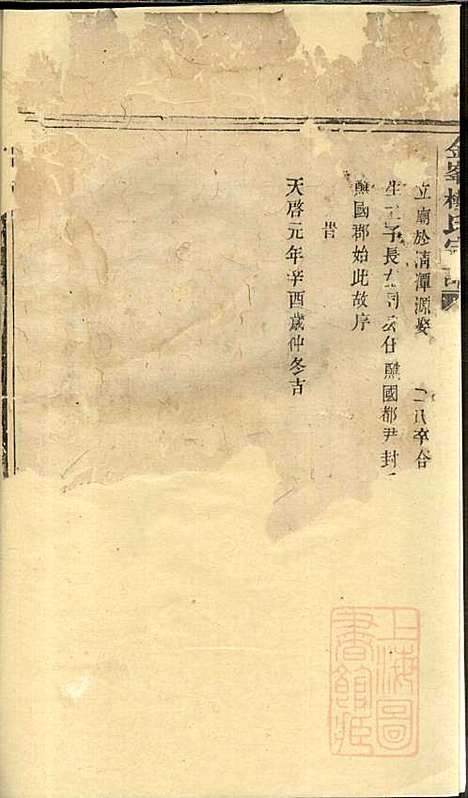 金峯楊氏宗譜
立廟於清潭源娶 二氏卒合
生三子長 仕熊國都尹封
熊國郡始此故序
旹
天啓元年辛酉歲仲冬吉
上海圖
書館藏